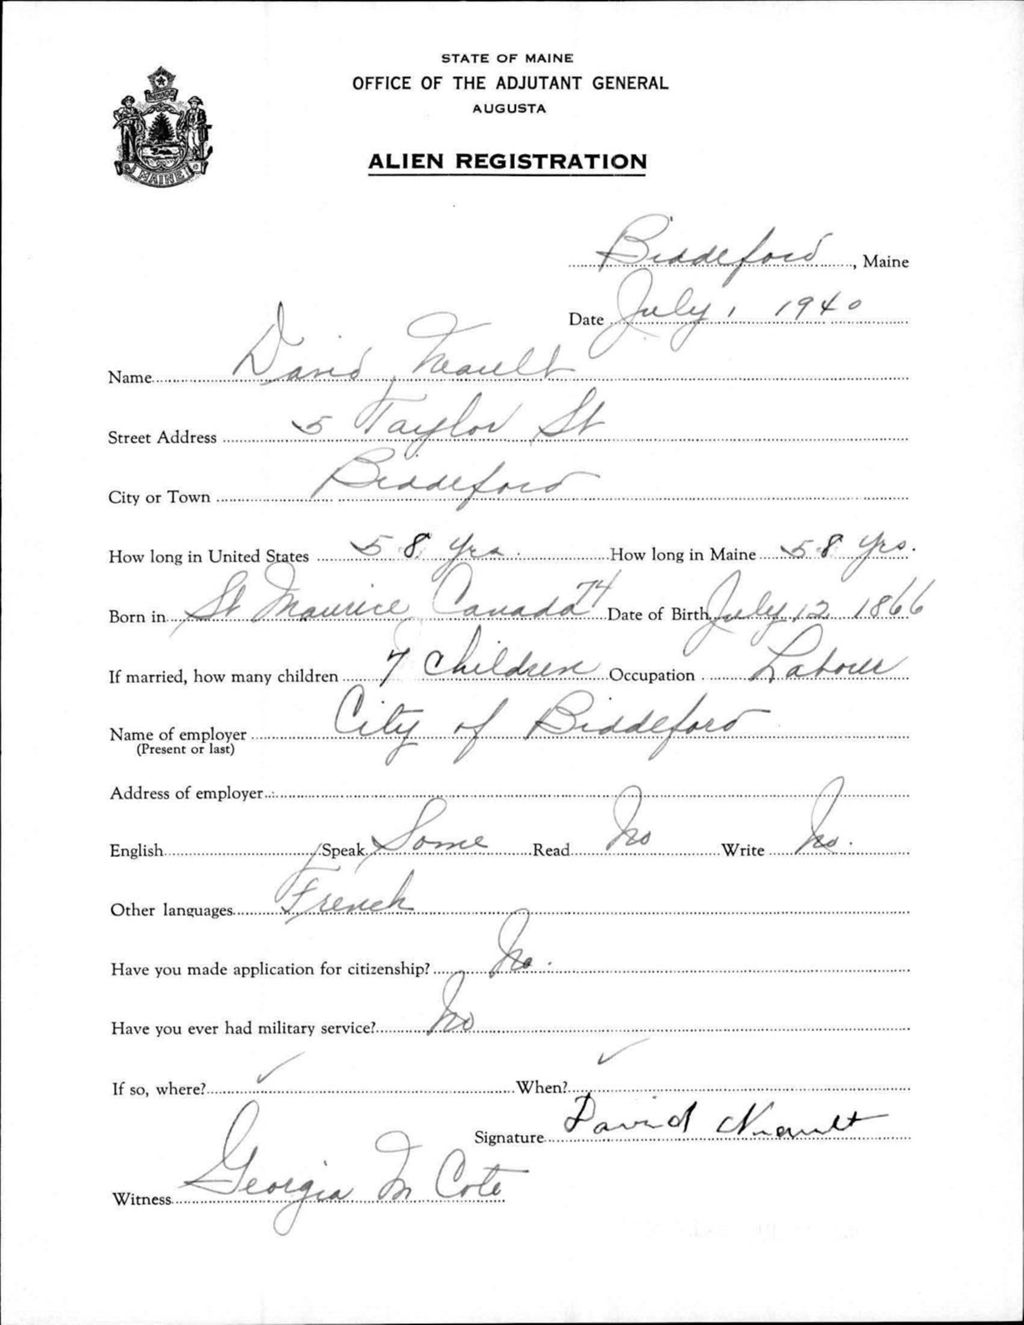 STATE OF MAINE
OFFICE OF THE ADJUTANT GENERAL
AUGUSTA
ALIEN REGISTRATION
MAINE
Biddeford, Maine
Date July 1, 1940
Name David Neault
Street Address 5 Taylor St
City or Town Biddeford
How long in United States 58 yrs. How long in Maine 58 yrs.
Born in St Maurice Canada 74 Date of Birth July 12 1866
If married, how many children 7 children Occupation Laborer
Name of employer City of Biddeford
(Present or last)
Address of employer
English Speak Some Read No Write No.
Other languages French
Have you made application for citizenship? No.
Have you ever had military service? No
If so, where? ✓ When? ✓
Signature David
Witness Georgia M Cote